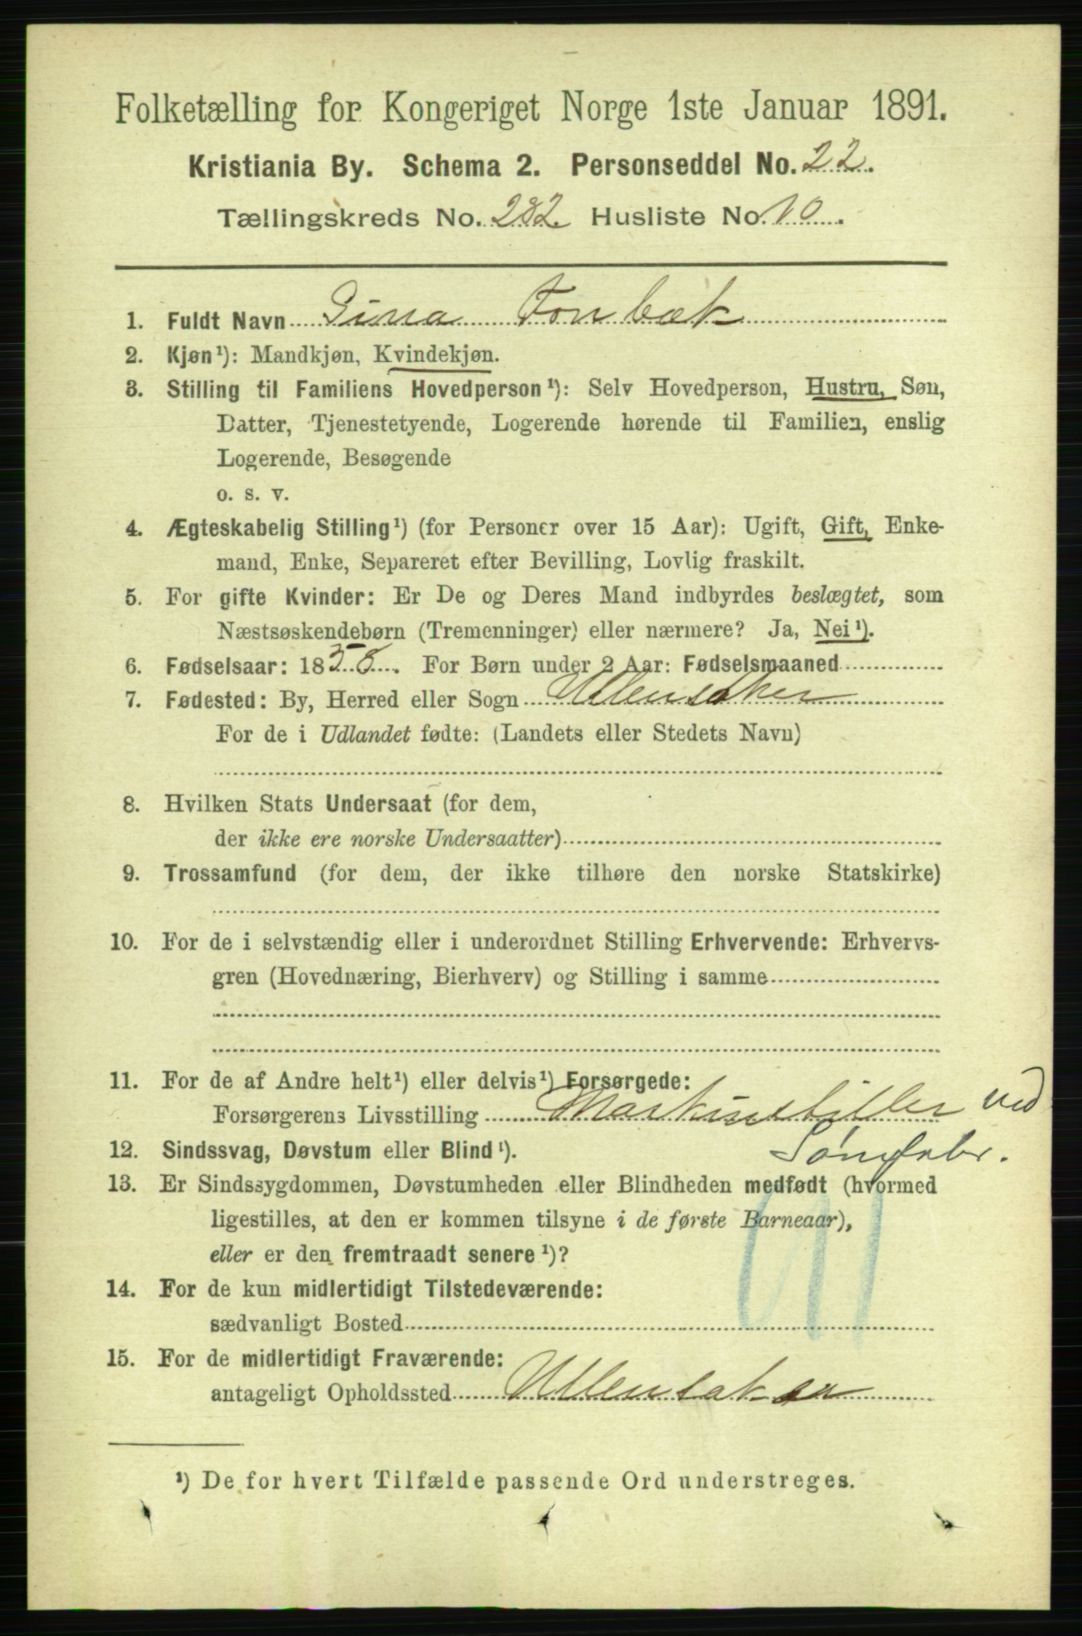 Folketælling for Kongeriget Norge 1ste Januar 1891.
Kristiania By. Schema 2. Personseddel No. 22.
Tællingskreds No. 282. Husliste No. 10.
1. Fuldt Navn Gina Fonbæk
2. Kjøn¹): Mandkjøn, Kvindekjøn.
3. Stilling til Familiens Hovedperson¹): Selv Hovedperson, Hustru, Søn,
Datter, Tjenestetyende, Logerende hørende til Familien, enslig
Logerende, Besøgende
o. s. v.
4. Ægteskabelig Stilling¹) (for Personer over 15 Aar): Ugift, Gift, Enke-
mand, Enke, Separeret efter Bevilling, Lovlig fraskilt.
5. For gifte Kvinder: Er De og Deres Mand indbyrdes beslægtet, som
Næstsøskendebørn (Tremenninger) eller nærmere? Ja, Nei¹).
6. Fødselsaar: 1858. For Børn under 2 Aar: Fødselsmaaned
7. Fødested: By, Herred eller Sogn Ullensaker
For de i Udlandet fødte: (Landets eller Stedets Navn)
8. Hvilken Stats Undersaat (for dem,
der ikke ere norske Undersaatter)
9. Trossamfund (for dem, der ikke tilhøre den norske Statskirke)
10. For de i selvstændig eller i underordnet Stilling Erhvervende: Erhvervs-
gren (Hovednæring, Bierhverv) og Stilling i samme
11. For de af Andre helt¹) eller delvis¹) Forsørgede:
Forsørgerens Livsstilling Maskinstiller ved
12. Sindssvag, Døvstum eller Blind¹). Sømfabr.
13. Er Sindssygdommen, Døvstumheden eller Blindheden medfødt (hvormed
ligestilles, at den er kommen tilsyne i de første Barneaar),
eller er den fremtraadt senere¹)?
14. For de kun midlertidigt Tilstedeværende:
sædvanligt Bosted
15. For de midlertidigt Fraværende:
antageligt Opholdssted Ullensaker
¹) De for hvert Tilfælde passende Ord understreges.